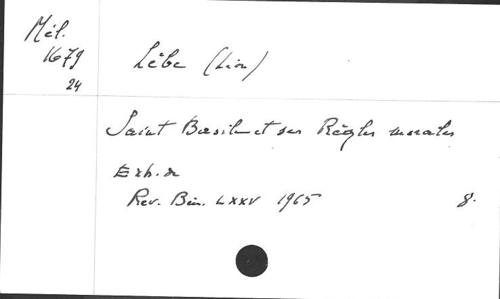 Mél.
1679
24
Lèbe (Léon)
Saint Basile et ses Règles morales
Extr. de
Rev. Bén. LXXV 1965 8.